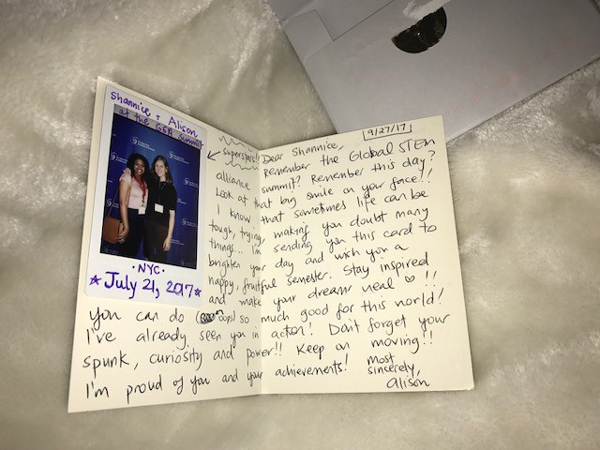 Shannice + Alison
at the GSA Summit
• NYC •
★ July 21, 2017 ★
superstars!!
9/27/17
Dear Shannice,
Remember the Global STEM
alliance summit? Remember this day?
Look at that big smile on your face!!
I know that sometimes life can be
tough, trying, making you doubt many
things... I'm sending you this card to
brighten your day and wish you a
happy, fruitful semester. Stay inspired
and make your dreams real ♡!!
you can do (oops!) so much good for this world!
I've already seen you in action! Don't forget your
spunk, curiosity and power!! Keep on moving!!
I'm proud of you and your achievements!
most
sincerely,
Alison